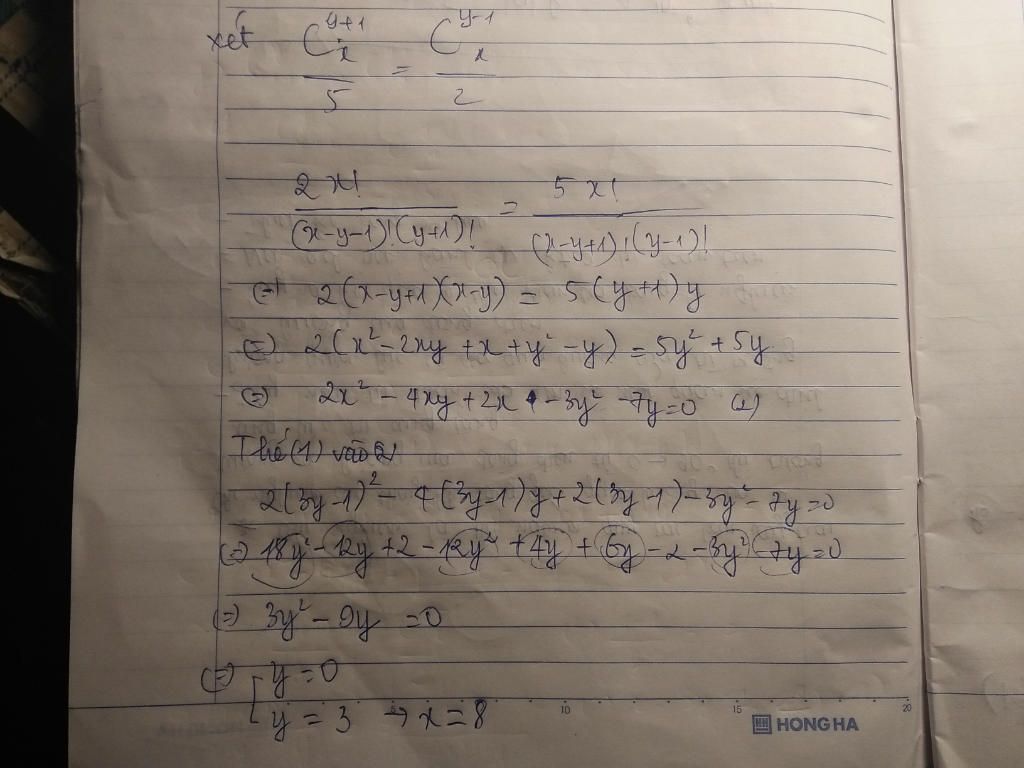 xét C_x^{y+1}/5 = C_x^{y-1}/2
2x!/((x-y-1)!(y+1)!) = 5x!/((x-y+1)!(y-1)!)
(=) 2(x-y+1)(x-y) = 5(y+1)y
(=) 2(x²-2xy+x+y²-y) = 5y²+5y
(=) 2x² - 4xy + 2x - 3y² - 7y = 0 (2)
Thế (1) vào (2)
2(3y-1)² - 4(3y-1)y + 2(3y-1) - 3y² - 7y = 0
(=) 18y² - 12y + 2 - 12y² + 4y + 6y - 2 - 3y² - 7y = 0
(=) 3y² - 9y = 0
(=) [ y = 0
y = 3 → x = 8
10 15 20
HONG HA